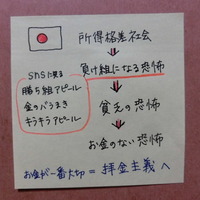 所得格差社会
負け組になる恐怖
SNSに戻る
勝ち組アピール
金のバラまき
キラキラアピール
貧乏の恐怖
お金のない恐怖
お金が一番大切 = 拝金主義へ